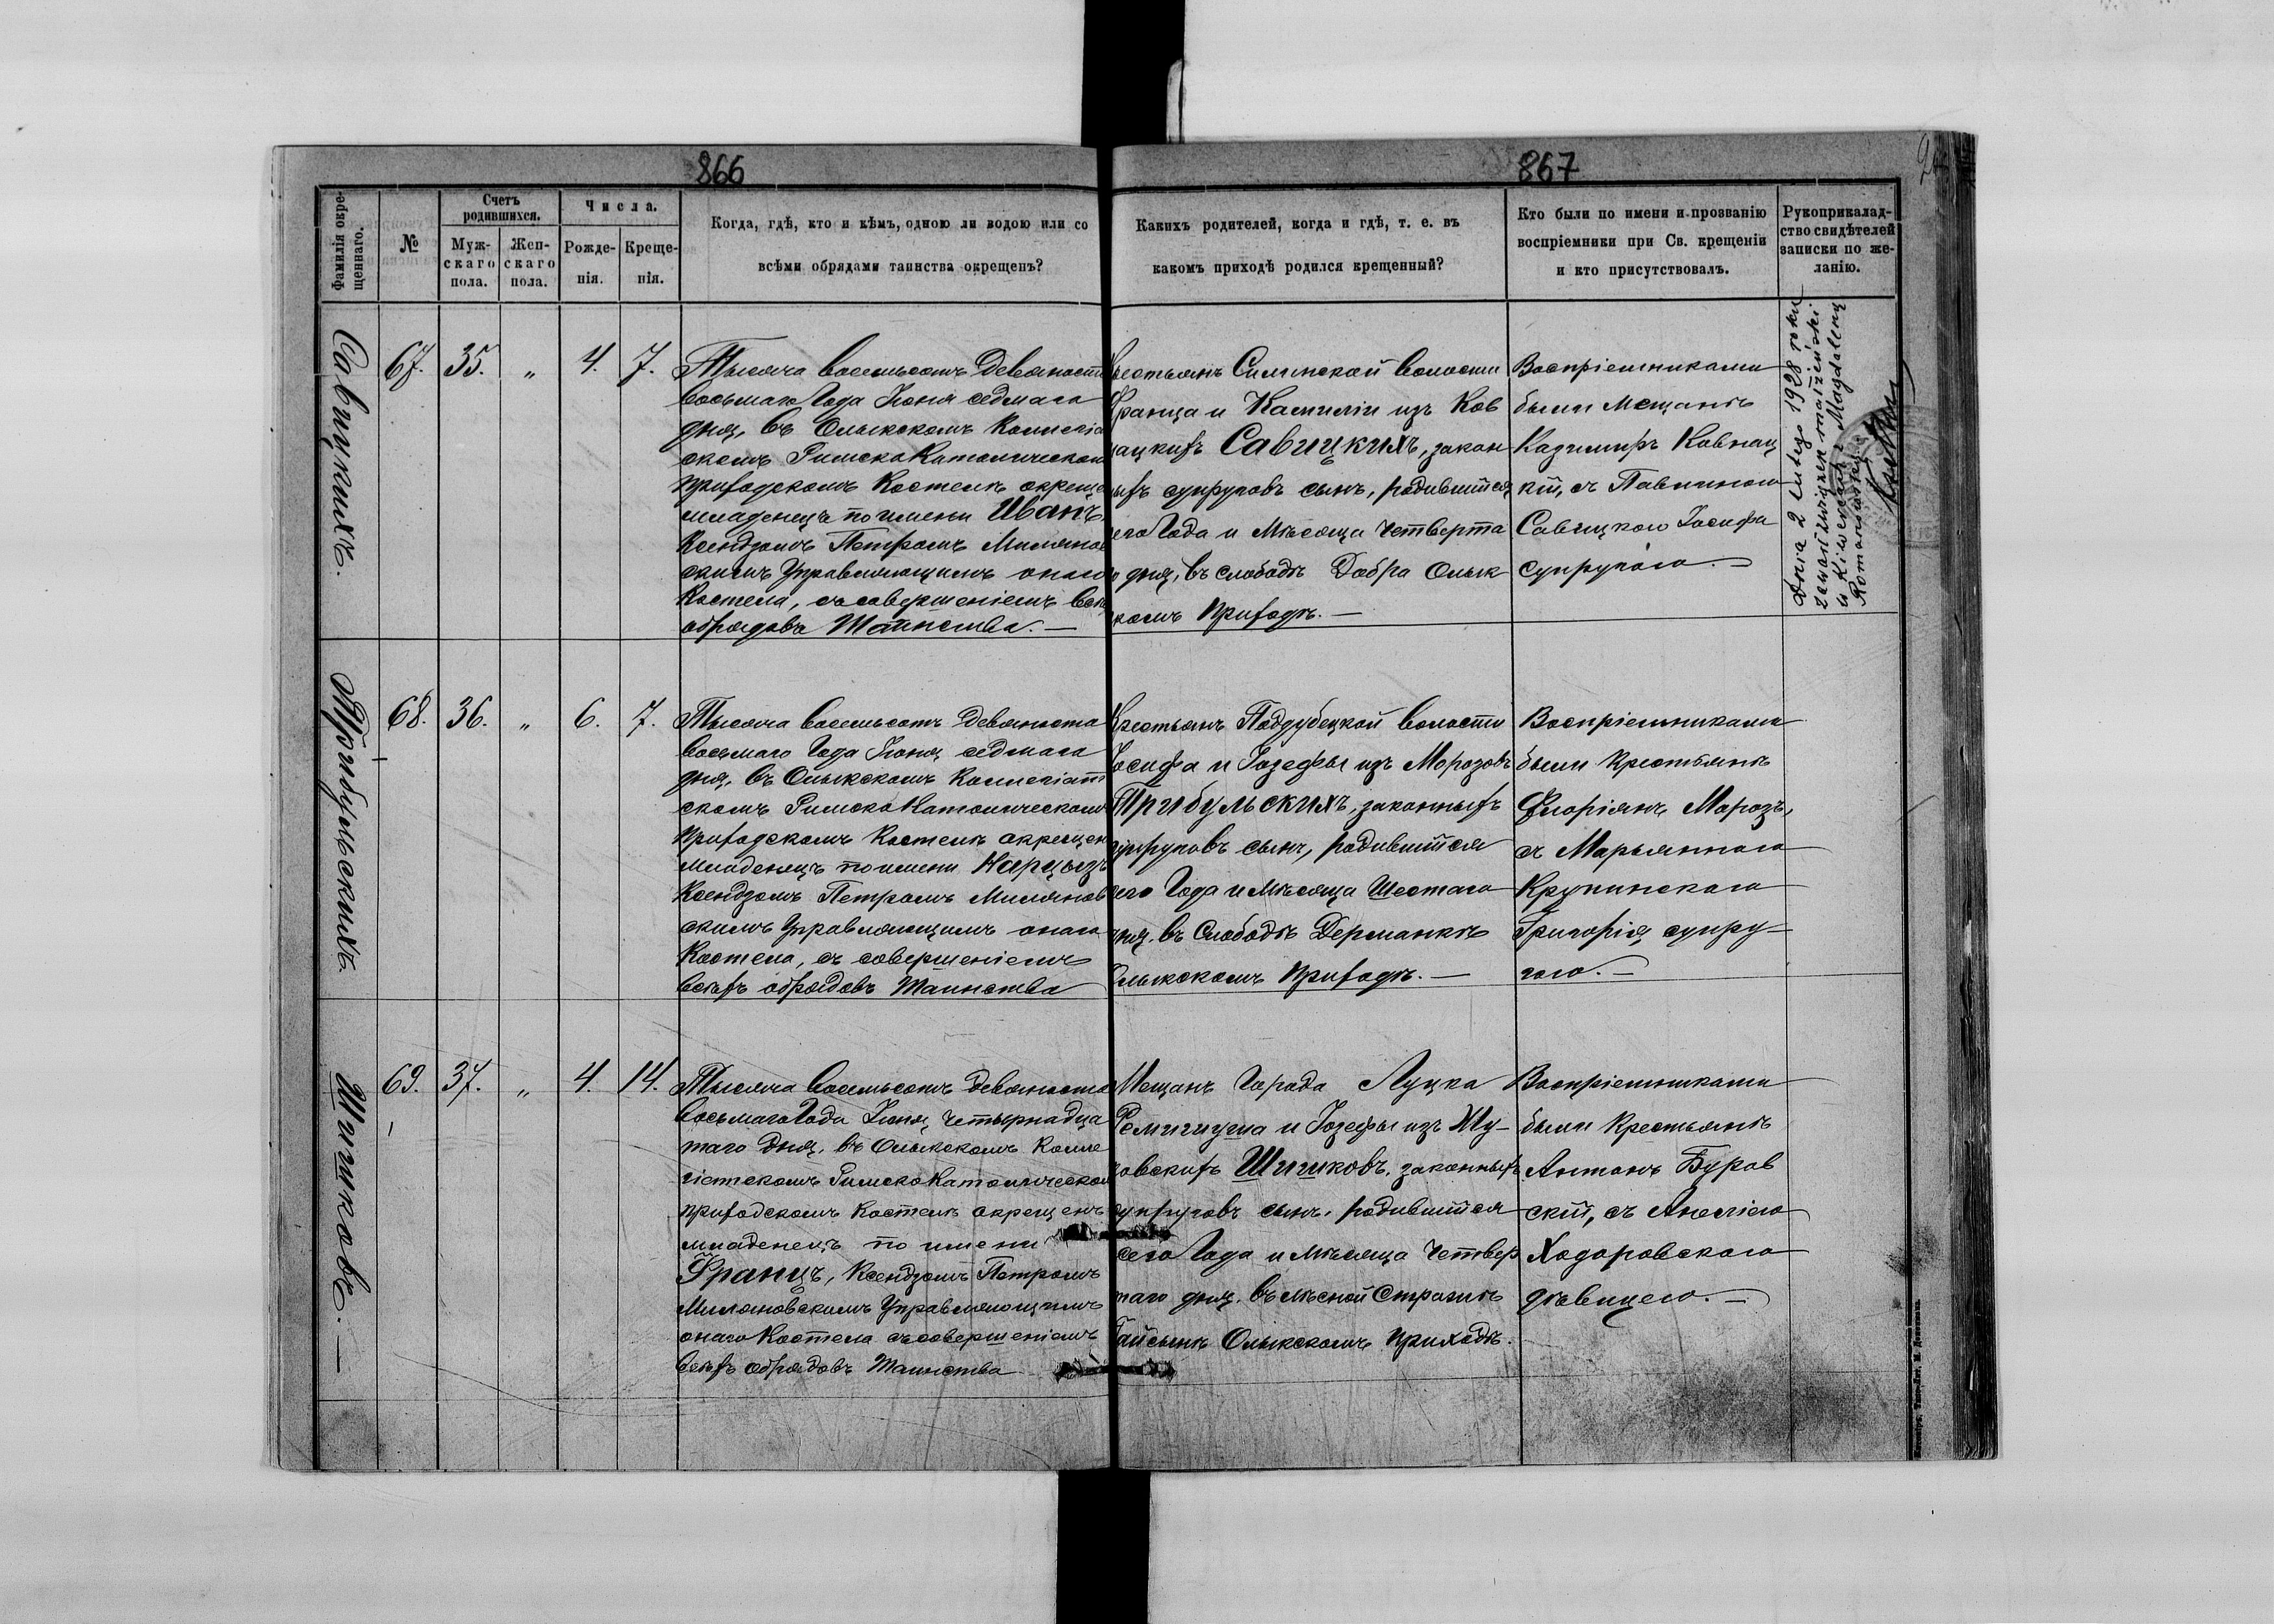 866
867
Фамилія окре-
щеннаго.
№
Счетъ
родившихся.
Муж-
скаго
пола.
Жен-
скаго
пола.
Числа.
Рожде-
нія.
Креще-
нія.
Когда, гдѣ, кто и кѣмъ, одною ли водою или со
всѣми обрядами таинства окрещенъ?
Какихъ родителей, когда и гдѣ, т. е. въ
какомъ приходѣ родился крещенный?
Кто были по имени и прозванію
воспріемники при Св. крещеніи
и кто присутствовалъ.
Рукоприкалад-
ство свидѣтелей
записки по же-
ланію.
Савицкихъ.
67. 35. „ 4. 7.
Тысяча восемьсотъ девяносто
восьмаго Года Іюня седмаго
дня, въ Олыкскомъ Коллегіа
скомъ Римско Католическом
приходскомъ Костелѣ окреще
младенецъ по имени Иванъ,
Ксендзомъ Петромъ Милянов
скимъ Управляющимъ онаго
Костела, съ совершеніемъ всѣ
обрядовъ Таинства. —
рестьянъ Силинской волости
Франца и Камиліи изъ Ков
нацкихъ Савицкихъ, закон
ыхъ супруговъ сынъ, родившійся
его Года и Мѣсяца четверта
о дня, въ слободѣ Добра Олык
комъ Приходѣ. —
Воспріемниками
были Мещанѣ
Казимиръ Ковнац
кій, съ Павлиною
Савицкою Іосифа
супругою. —
Dnia 2 lutego 1928 roku
zawarł związek małżeński
w Kiwercach z Magdaleną
Romanowską
Трибульскихъ
68. 36. „ 6. 7.
Тысяча восемьсотъ девяноста
восьмаго Года Іюня седмаго
дня, въ Олыкскомъ Коллегіат
скомъ Римско Католическомъ
Приходскомъ Костелѣ окрещен
младенецъ по имени Нарцызъ
Ксендзомъ Петромъ Милянов
скимъ Управляющимъ онаго
Костела, съ совершеніемъ
всѣхъ обрядовъ Таинства
Крестьянъ Поддубецкой волости
Іосифа и Іозефы изъ Морозовъ
Трибульскихъ, законныхъ
супруговъ сынъ, родившійся
его Года и Мѣсяца Шестаго
дня, въ Слободѣ Дерманкѣ
Олыкскомъ Приходѣ. —
Воспріемниками
были Крестьянѣ
Флоріянъ Морозъ,
съ Марьянною
Крупинскою
Григорія супру-
гою. —
Шишковъ. —
69. 37. „ 4. 14.
Тысяча восемьсотъ девяноста
восьмаго Года Іюня четырнадца
таго дня, въ Олыкскомъ Колле
гіатскомъ Римско Католическом
приходскомъ Костелѣ окрещенъ
младенецъ по имени
Францъ, Ксендзомъ Петромъ
Миляновскимъ Управляющимъ
онаго Костела съ совершеніемъ
всѣхъ обрядовъ Таинства
Мещанъ Города Луцка
Ремигіуша и Іозефы изъ Жу-
ковскихъ Шишковъ, законныхъ
супруговъ сынъ, родившійся
сего Года и Мѣсяца Четвер
таго дня, въ лѣсной Стражѣ
Гайсынѣ Олыкскомъ приходѣ.
Воспріемниками
были Крестьянѣ
Антонъ Буров
скій, съ Анелією
Ходоровскою
дѣвицею. —